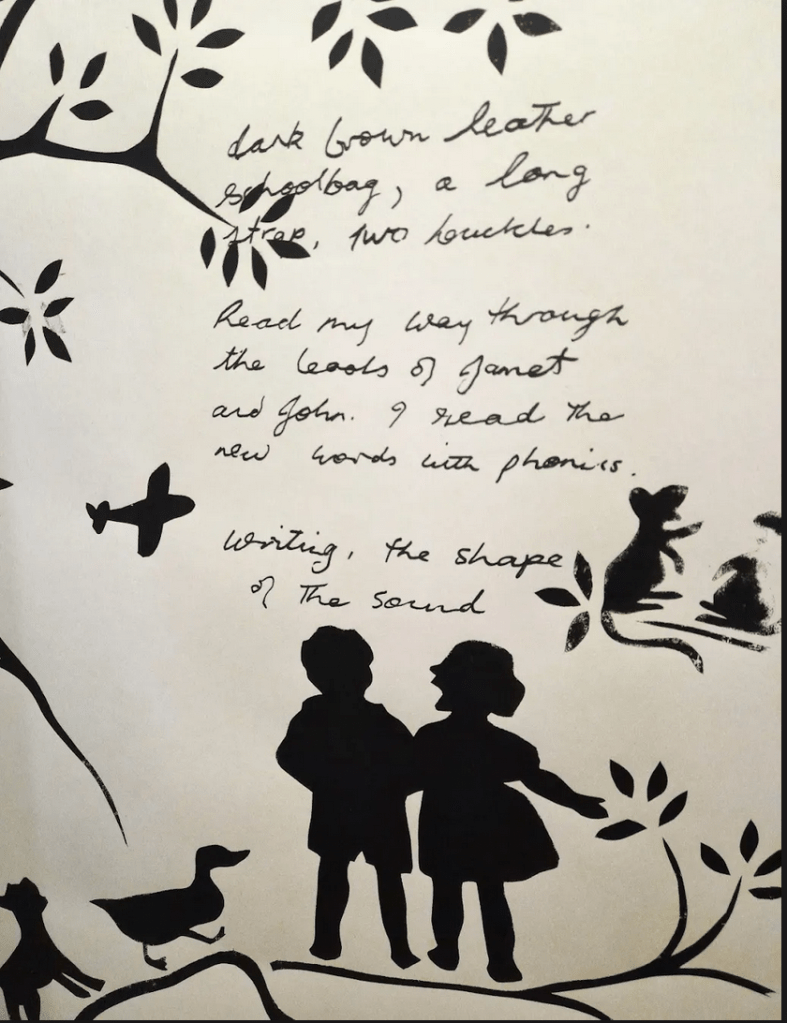 dark brown leather
schoolbag, a long
strap, two buckles.
Read my way through
the books of Janet
and John. I read the
new words with phonics.
Writing, the shape
of the sound